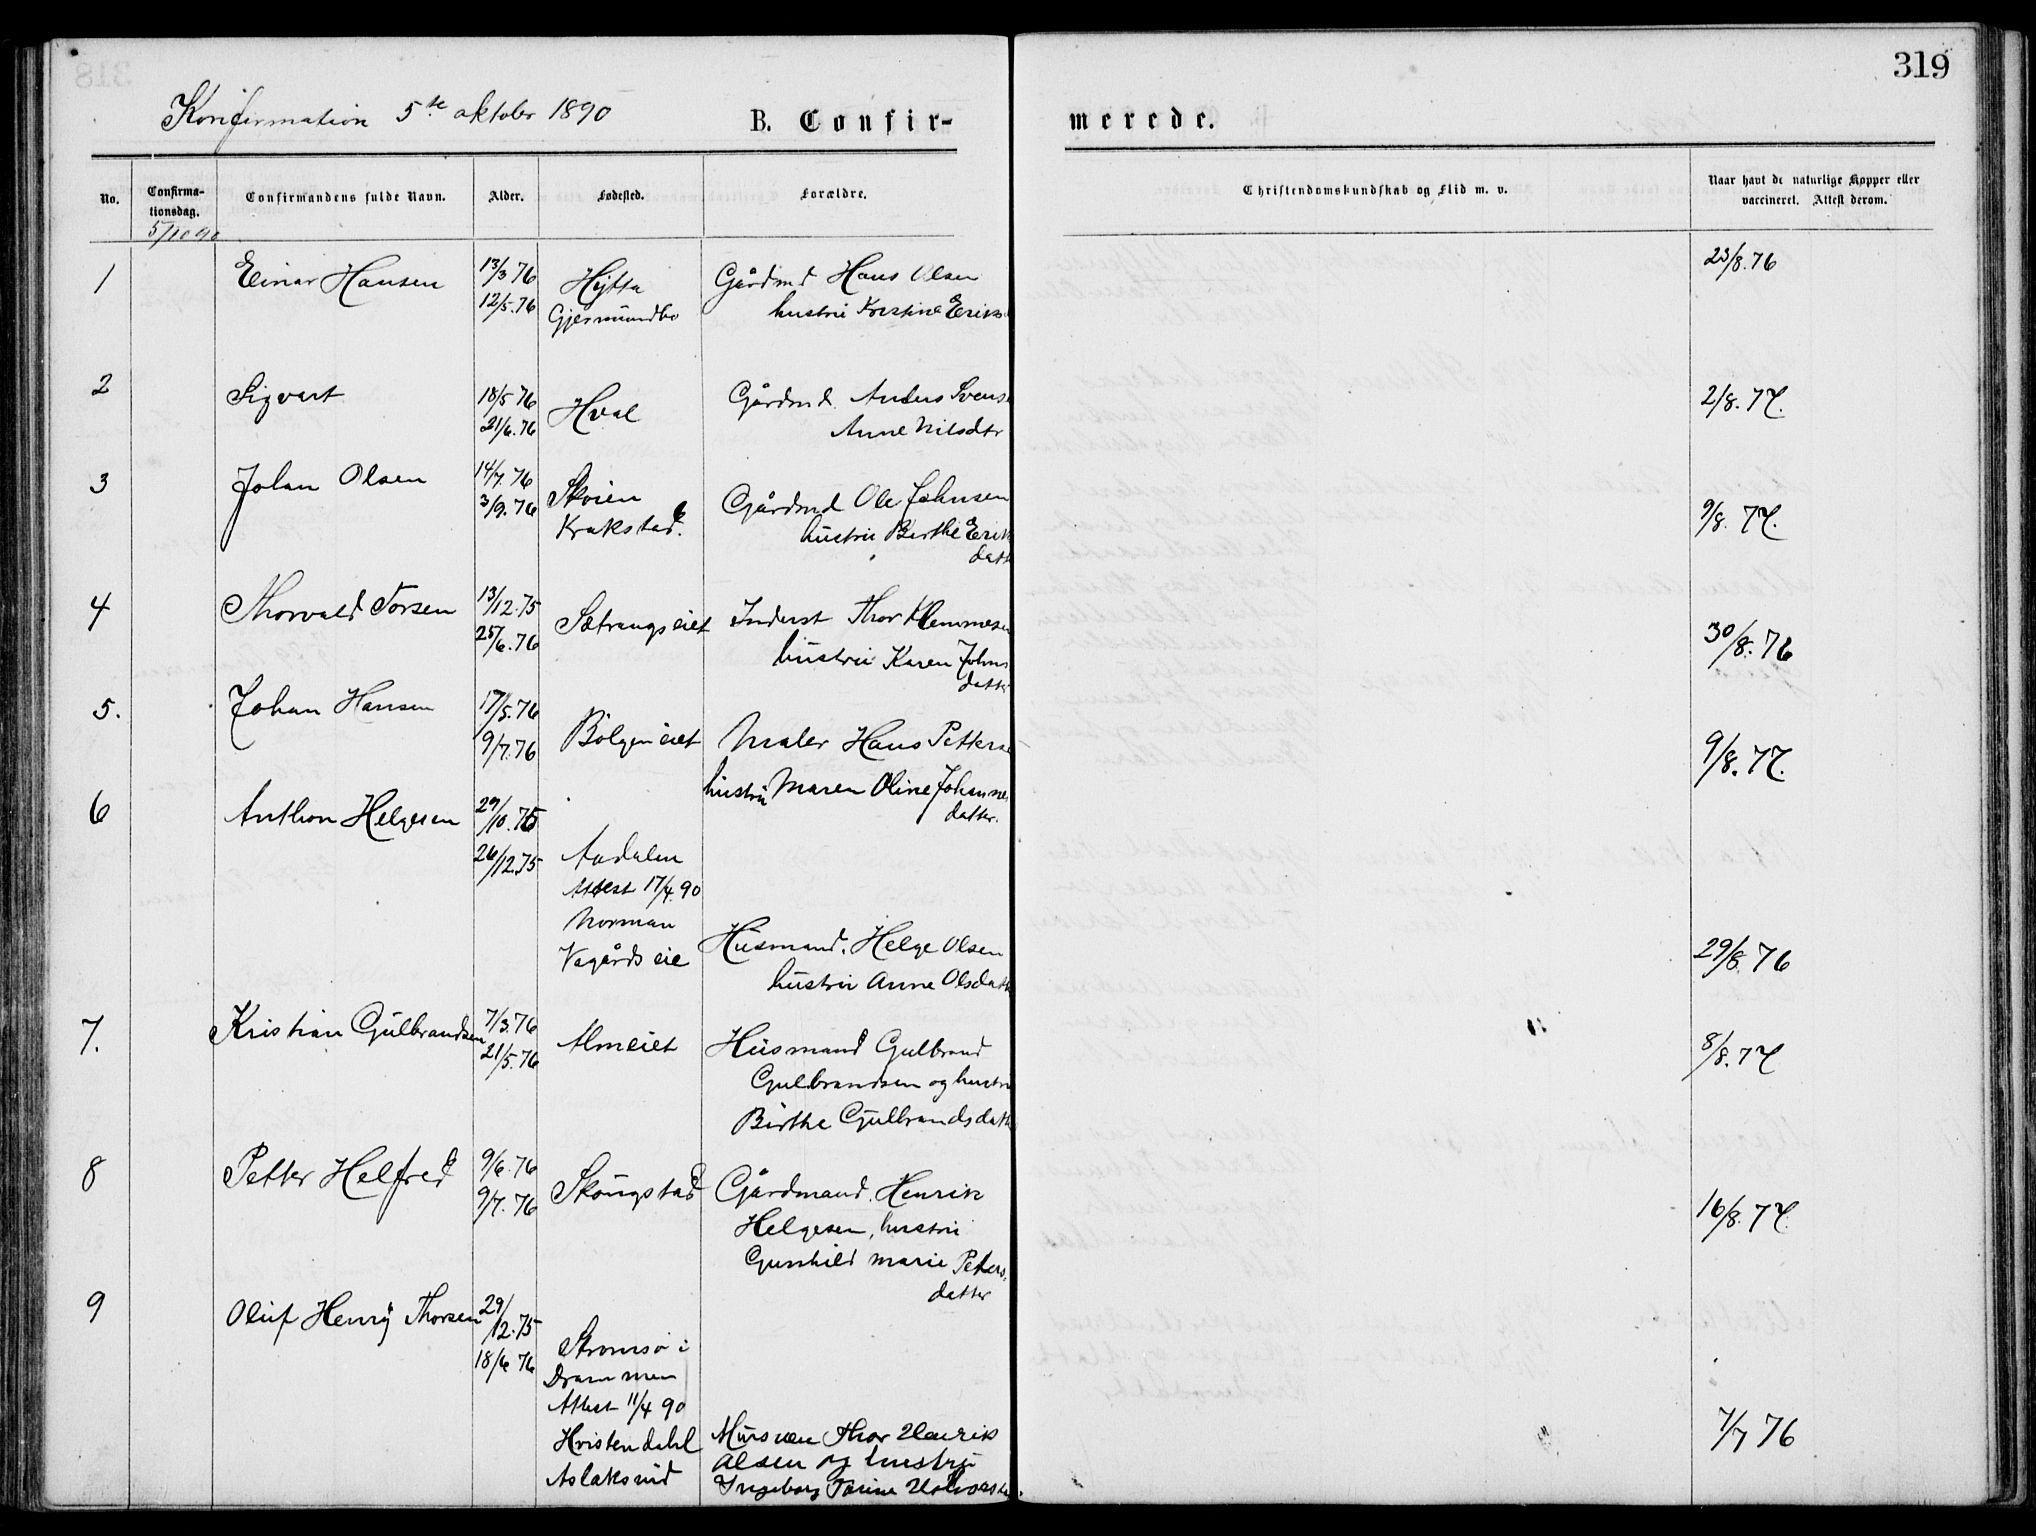 319
Konfirmation 5te oktober 1890
B. Confir-
merede.
No.
Confirma-
tionsdag.
Confirmandens fulde Navn.
Alder.
Fødested.
Forældre.
Christendomskundskab og Flid m. v.
Naar havt de naturlige Kopper eller
vaccineret. Attest derom.
5/10 90
1 Einar Hansen 13/3 76 Hytta Gårdmd Hans Olsen 23/8. 76
12/5. 76 Gjermundbo hustru Kristine Eriks
2 Sigvart 18/5 76 Hval Gårdmd. Anders Svens 2/8. 77.
21/6. 76 Anne Nilsdtr
3 Johan Olsen 14/7. 76 Skoien Gårdmd Ole Johnsen 9/8. 77.
3/9. 76 Krakstad. hustru Birthe Erik
datt
4 Thorvald Torsen 13/12. 75 Sætrangseiet Inderst Thor Klemmesen 30/8. 76
25/6. 76 hustru Karen Johns
datter
5. Johan Hansen 17/5. 76 Bølgeneiet Maler Hans Petterse 9/8. 77.
9/7. 76
hustru Maren Oline Johannes
datter.
6 Anthon Helgesen 29/10. 75
26/12. 75 Aadalen
Attest 17/4. 90
Norman
Vagårdseie Husmand. Helge Olsen 29/8. 76
hustru Anne Olsdatt
7. Kristian Gulbrandsen 7/3. 76 Almeiet Husmand Gulbrand 8/8. 77
21/5. 76 Gulbrandsen og hustru
Birthe Gulbrandsdatt
8 Petter Helfred 9/6. 76 Skougstad Gårdmand. Henrik 16/8. 77.
9/7. 76 Helgesen, hustru
Gunhild Marie Peters
datter
9 Oluf Henry Thorsen 29/12. 75
18/6 76 Strømsø i
Drammen
Attest 11/4 90
Hvistendahl Thor Henrik 7/7 76
Aslaksrud Olsen og hustru
Ingeborg